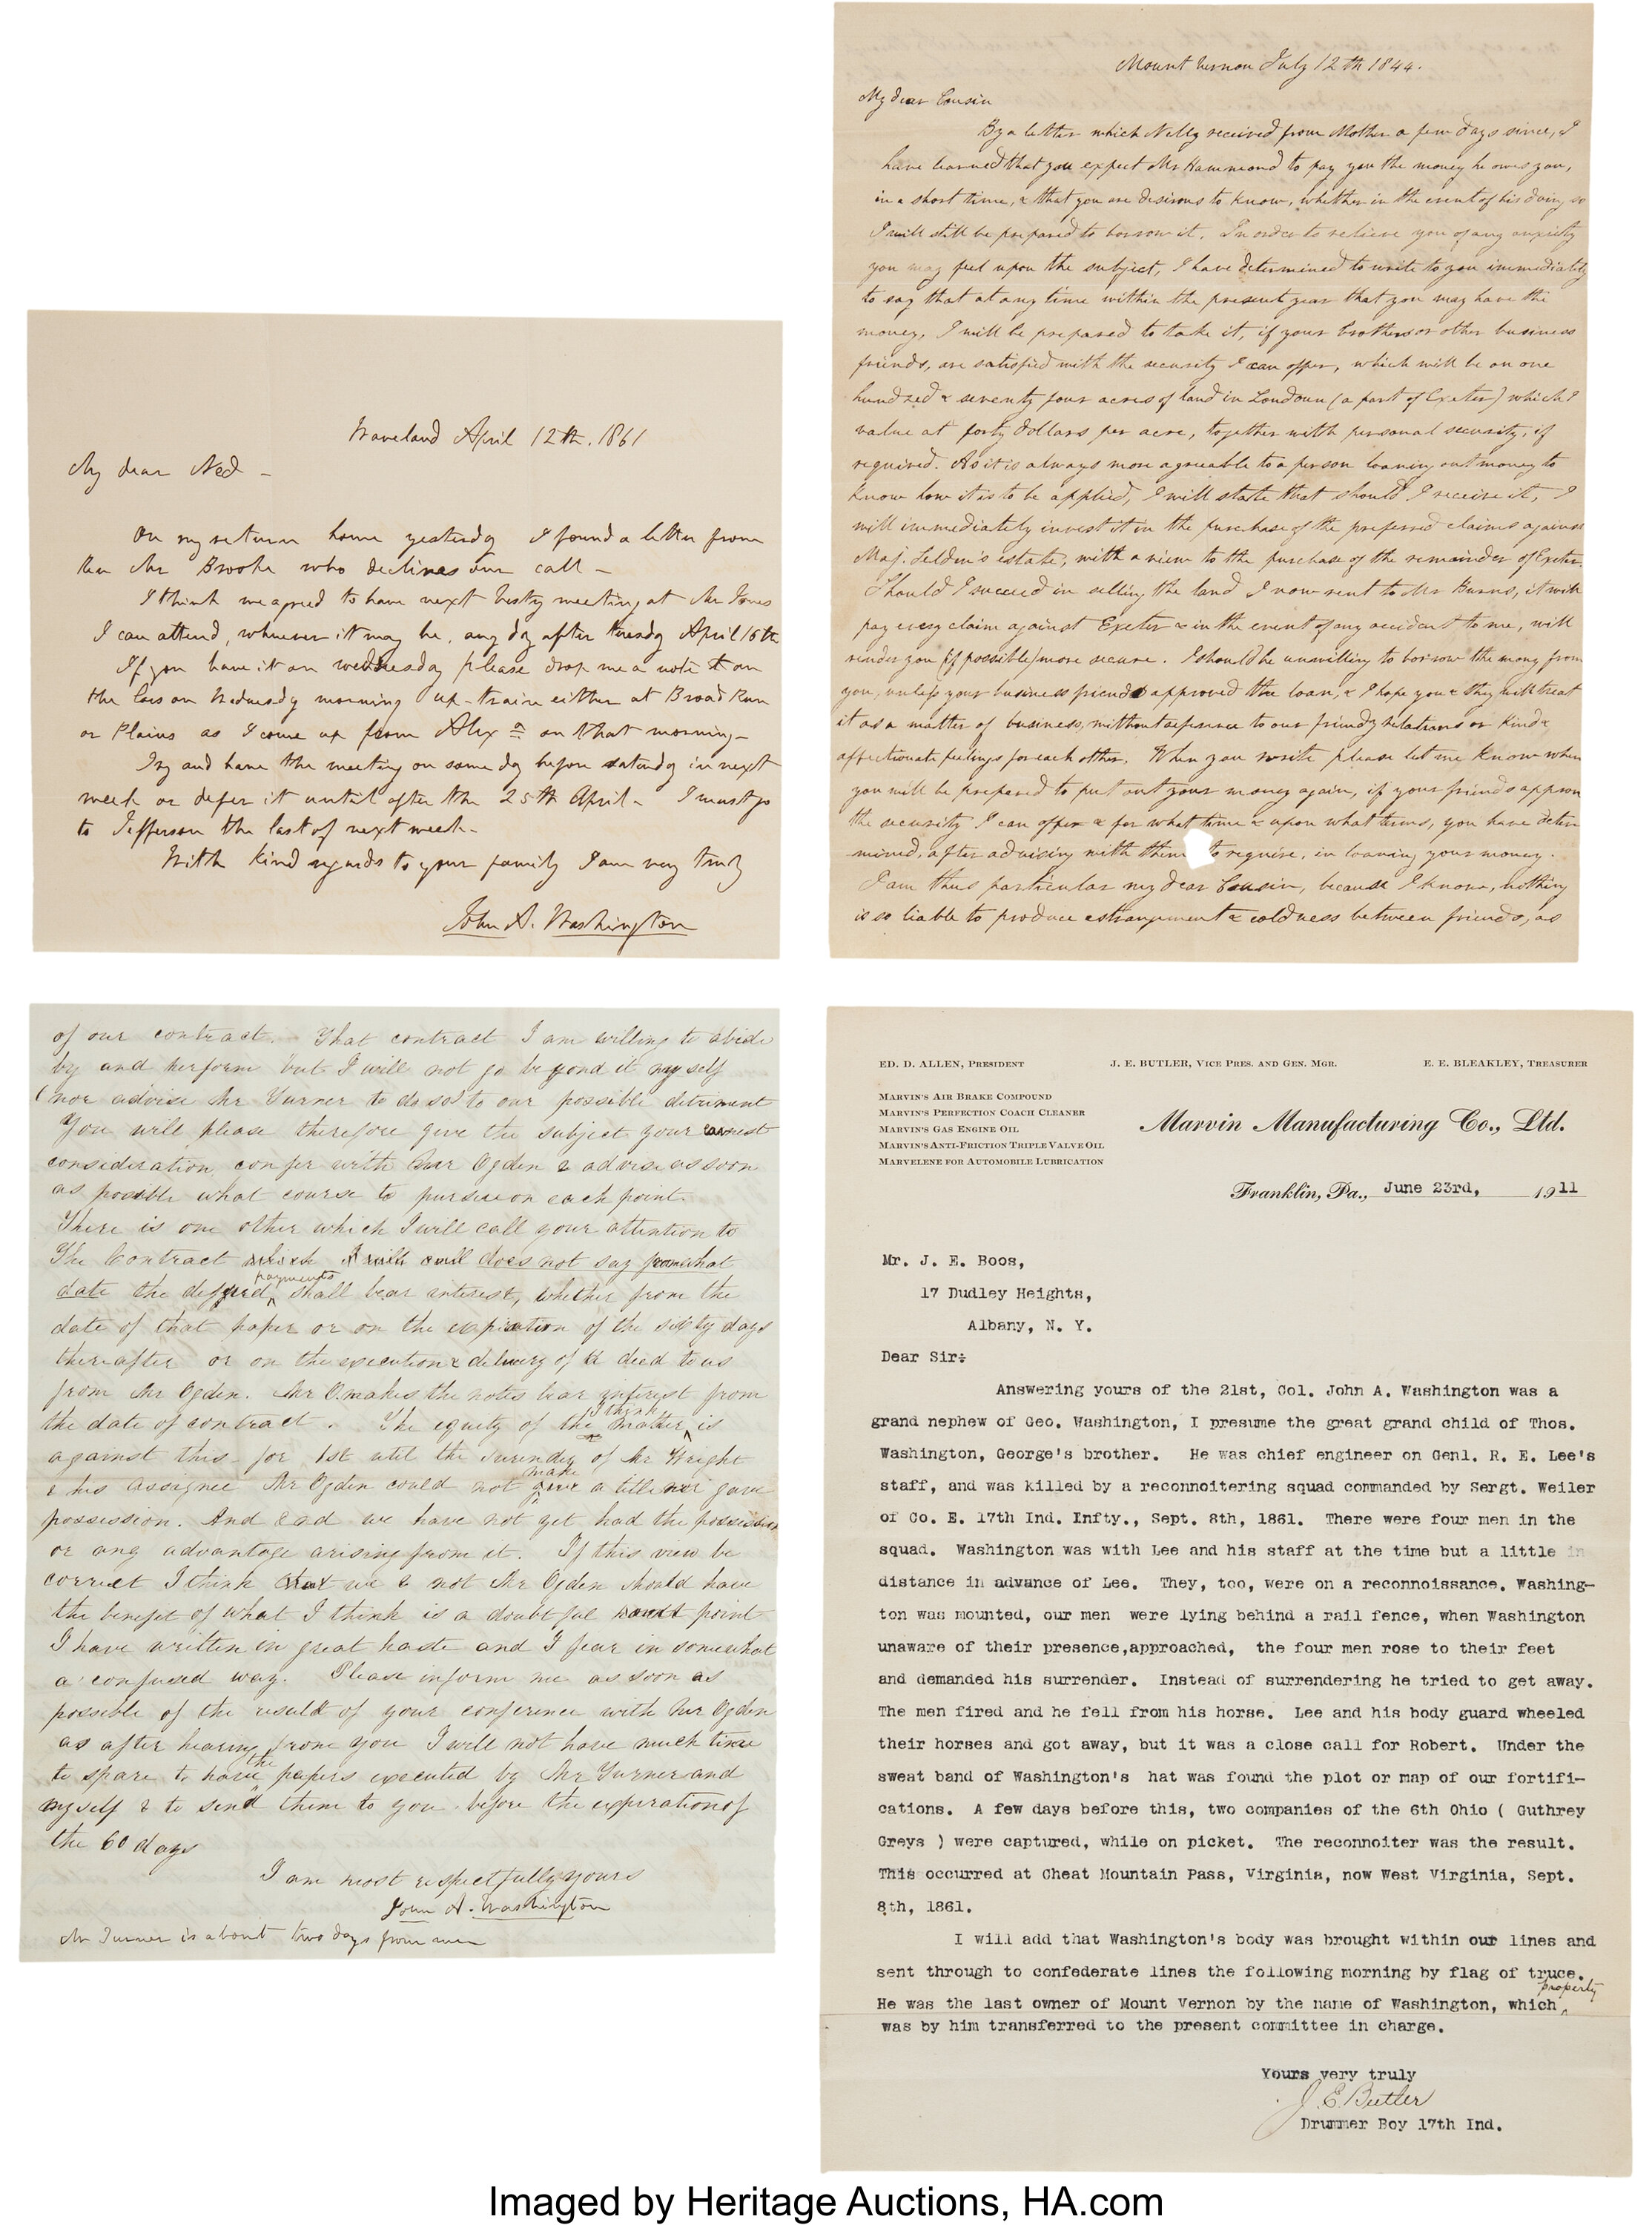 Waveland April 12th. 1861
My dear Ned -
On my return home yesterday I found a letter from
Rev Mr Brooke who declines our call -
I think we agreed to have next vestry meeting at Mr Jones
I can attend, whenever it may be, any day after tuesday April 16th
If you have it on wednesday please drop me a note
the cars on Wednesday morning up-train either at Broad Run
or Plains as I come up from Alexa on that morning -
Try and have the meeting on some day before saturday in next
week or defer it until after the 25th April - I must go
to Jefferson the last of next week -
With kind regards to your family I am very truly
John A. Washington
Mount Vernon July 12th 1844.
My dear Cousin
By a letter which Nelly received from Mother a few days since, I
have learned that you expect Mr Hammond to pay you the money he owes you,
in a short time, & that you are desirous to know, whether in the event of his doing so
I will still be prepared to borrow it. In order to relieve you of any anxiety
you may feel upon the subject, I have determined to write to you immediately
to say that at any time within the present year that you may have the
money, I will be prepared to take it, if your brothers or other business
friends, are satisfied with the security I can offer, which will be on one
hundred & seventy four acres of land in Loudoun (a part of Exeter) which I
value at forty dollars per acre, together with personal security, if
required. As it is always more agreable to a person loaning out money to
know how it is to be applied, I will state that should I receive it, I
will immediately invest it in the purchase of the preferred claims against
Maj. Selden's estate, with a view to the purchase of the remainder of Exeter.
Should I succeed in selling the land I now rent to Mr Burns, it will
pay every claim against Exeter & in the event of any accident to me, will
render you (if possible) more secure. I should be unwilling to borrow the mony from
you, unless your business friends approved the loan, & I hope you & they will treat
it as a matter of business, without reference to our friendly relations or kind &
affectionate feelings for each other. When you write please let me know when
you will be prepared to put out your money again, if your friends approve
the security I can offer & for what time & upon what terms, you have deter
mined, after advising with them to require, in loaning your money.
I am thus particular my dear Cousin, because I know, nothing
is so liable to produce estrangement & coldness between friends, as
of our contract. That contract I am willing to abide
by and perform but I will not go beyond it myself
(nor advise Mr Turner to do so) to our possible detriment
You will please therefore give the subject your earnest
consideration confer with Mr Ogden & advise as soon
as possible what course to pursue on each point.
There is one other which I will call your attention to
The Contract which I will call does not say from what
date the deferred payments shall bear interest, whether from the
date of that paper or on the expiration of the sixty days
thereafter or on the execution & delivery of deed to us
from Mr Ogden. Mr O. makes the notes bear interest from
the date of contract. The equity of the matter I think is
against this for 1st until the surender of Mr Wright
& his assignee Mr Ogden could not make a title nor gave
possession. And 2nd we have not yet had the possession
or any advantage arising from it. If this view be
correct I think that we & not Mr Ogden should have
the benefit of what I think is a doubtful point
I have written in great haste and I fear in somewhat
a confused way. Please inform me as soon as
possible of the result of your conference with Mr Ogden
as after hearing from you I will not have much time
to spare to have the papers executed by Mr Turner and
myself & to send them to you before the expiration of
the 60 days
I am most respectfully yours
John A. Washington
Mr Turner is about two days from me
ED. D. ALLEN, PRESIDENT J. E. BUTLER, VICE PRES. AND GEN. MGR. E. E. BLEAKLEY, TREASURER
MARVIN'S AIR BRAKE COMPOUND
MARVIN'S PERFECTION COACH CLEANER
MARVIN'S GAS ENGINE OIL
MARVIN'S ANTI-FRICTION TRIPLE VALVE OIL
MARVELENE FOR AUTOMOBILE LUBRICATION
Marvin Manufacturing Co., Ltd.
Franklin, Pa., June 23rd, 1911
Mr. J. E. Boos,
17 Dudley Heights,
Albany, N. Y.
Dear Sir:
Answering yours of the 21st, Col. John A. Washington was a
grand nephew of Geo. Washington, I presume the great grand child of Thos.
Washington, George's brother. He was chief engineer on Genl. R. E. Lee's
staff, and was killed by a reconnoitering squad commanded by Sergt. Weiler
of Co. E. 17th Ind. Infty., Sept. 8th, 1861. There were four men in the
squad. Washington was with Lee and his staff at the time but a little in
distance in advance of Lee. They, too, were on a reconnoissance. Washing-
ton was mounted, our men were lying behind a rail fence, when Washington
unaware of their presence,approached, the four men rose to their feet
and demanded his surrender. Instead of surrendering he tried to get away.
The men fired and he fell from his horse. Lee and his body guard wheeled
their horses and got away, but it was a close call for Robert. Under the
sweat band of Washington's hat was found the plot or map of our fortifi-
cations. A few days before this, two companies of the 6th Ohio ( Guthrey
Greys ) were captured, while on picket. The reconnoiter was the result.
This occurred at Cheat Mountain Pass, Virginia, now West Virginia, Sept.
8th, 1861.
I will add that Washington's body was brought within our lines and
sent through to confederate lines the following morning by flag of truce.
He was the last owner of Mount Vernon by the name of Washington, which property
was by him transferred to the present committee in charge.
Yours very truly
J. E. Butler
Drummer Boy 17th Ind.
Imaged by Heritage Auctions, HA.com